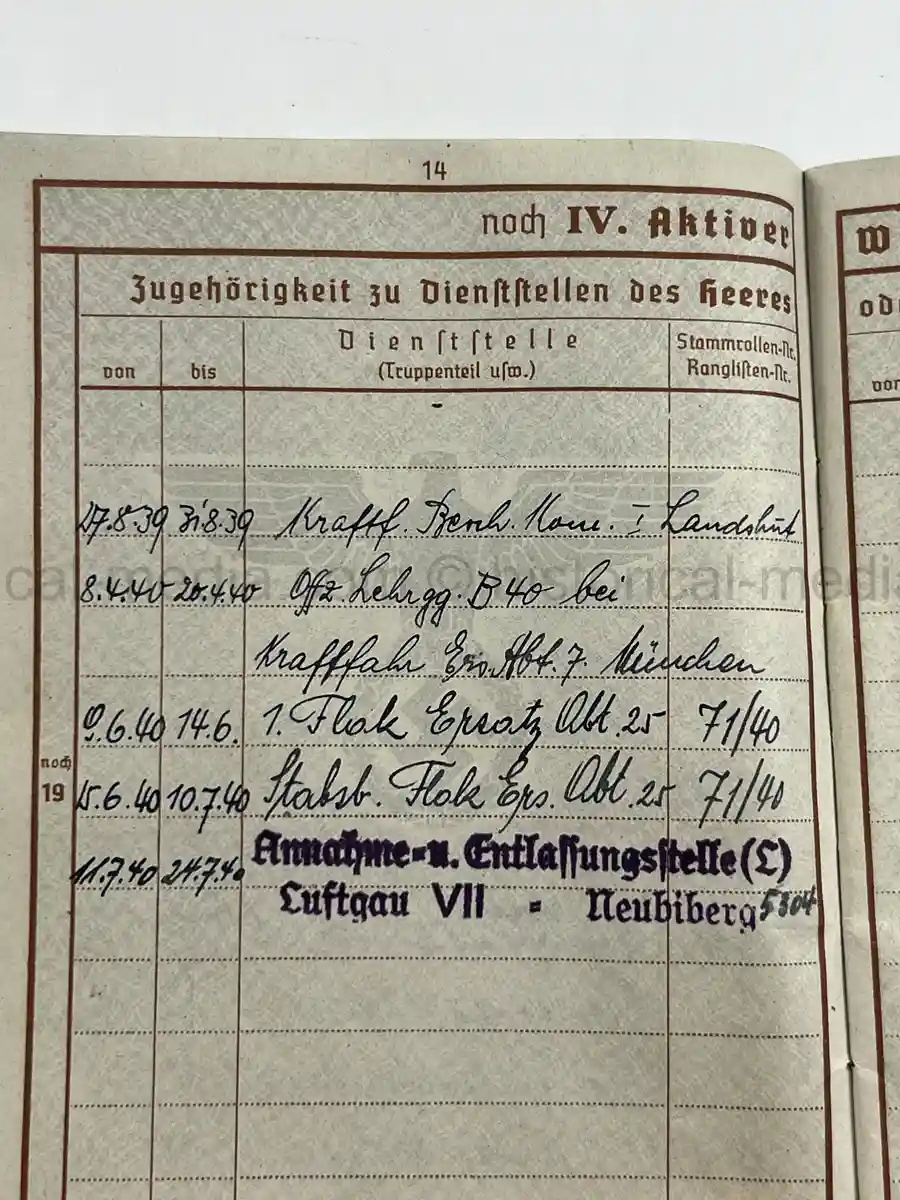 14
noch IV. Aktiver
W
Zugehörigkeit zu Dienststellen des Heeres
von
bis
Dienststelle
(Truppenteil usw.)
Stammrollen-Nr.
Ranglisten-Nr.
27.8.39 31.8.39 Kraftf. Besch. Kom. I Landshut
8.4.40 20.4.40 Offz. Lehrgg. B 40 bei
Kraftfahr Ers. Abt. 7. München
9.6.40 14.6. 1. Flak Ersatz Abt. 25 71/40
noch
19
15.6.40 10.7.40 Stabsb. Flak Ers. Abt. 25 71/40
11.7.40 24.7.40 Annahme-u. Entlassungsstelle (L)
Luftgau VII - Neubiberg 5304